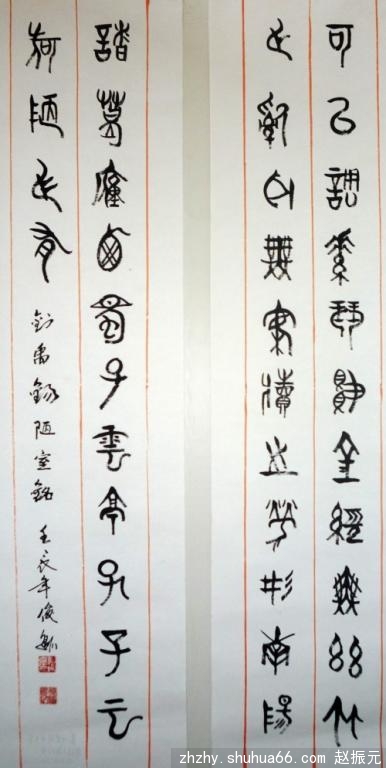 可以調素琴閱金經無絲竹
之亂耳無案牘之勞形南陽
諸葛廬西蜀子雲亭孔子云
何陋之有
劉禹錫陋室銘 壬辰年俊
zhzhy.shuhua66.com 赵振元